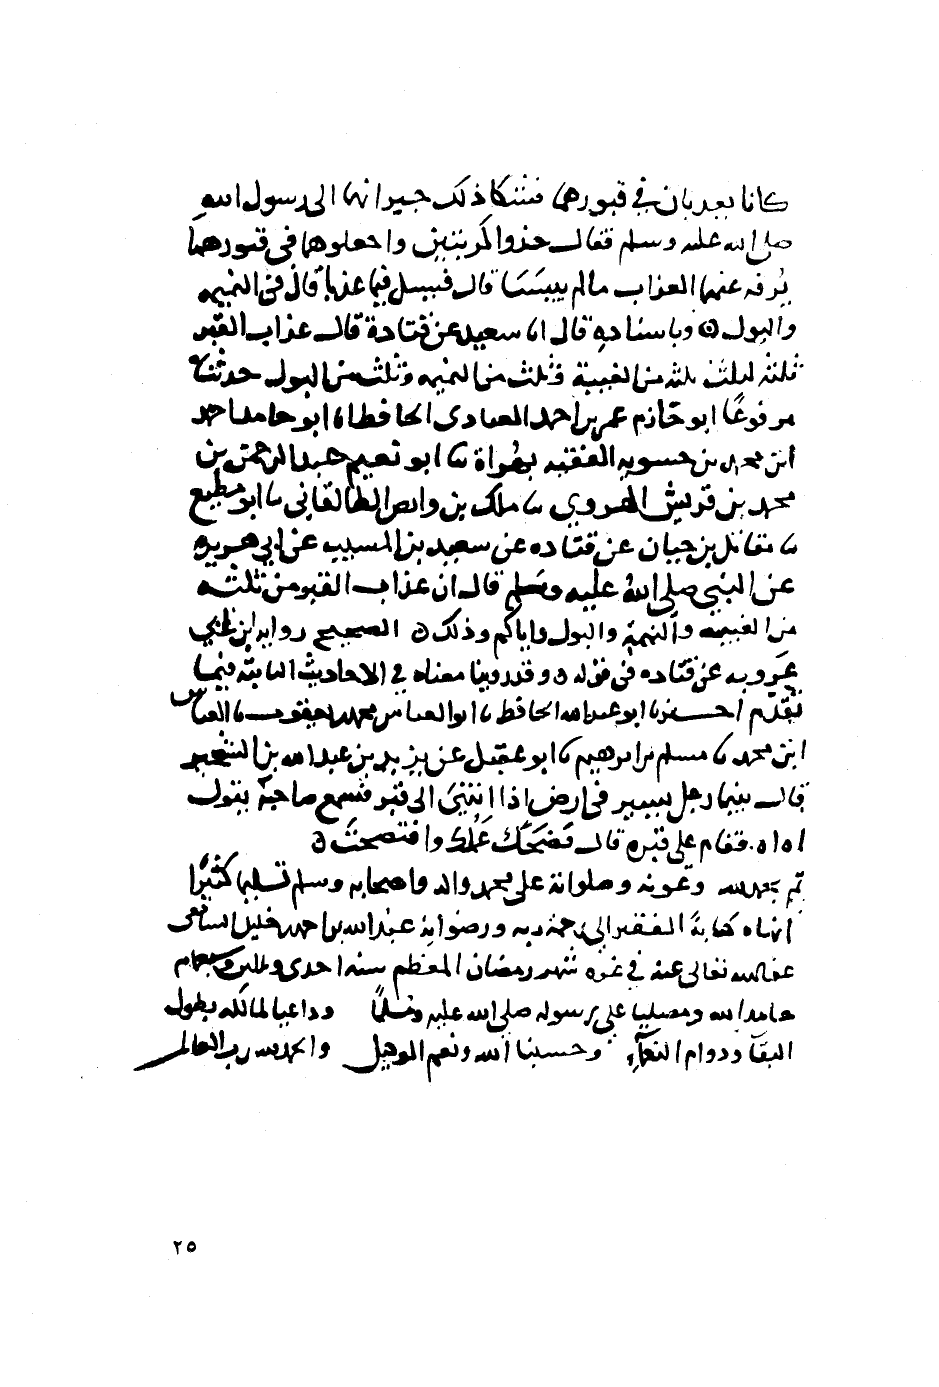 كانا يعذبان في قبورهما فشكا ذلك جيرانهما الى رسول الله
صلى الله عليه وسلم فقال خذوا كربتين واجعلوهما في قبورهما
يرفه عنهما العذاب مالم ييبسا قال فسئل فيما عذبا قال في النميمه
والبول ه وباسناده قال انا سعيد عن قتادة قال عذاب القبر
ثلثه اثلاث ثلث من الغيبة وثلث من النميمه وثلث من البول حدثناه
مرفوعًا ابو حازم عمر بن احمد العبادي الحافظ انا ابو حامد احمد
ابن محمد بن حسويه الفقيه بهراة نا ابو نعيم عبدالرحمن بن
محمد بن قريش الهروي نا مالك بن وابص الطالقاني نا ابو مطيع
نا مقاتل بن حيان عن قتاده عن سعيد بن المسيب عن ابي هريره
عن النبي صلى الله عليه وسلم قال ان عذاب القبر من ثلثه
من الغيبة والنميمة والبول واياكم وذلك ه الصحيح رواية ابن ابي
عروبه عن قتاده في قوله ه وقد روينا معناه في الاحاديث الثابته فيما
تقدّم اخبرنا ابو عبدالله الحافظ نا ابو العباس محمد بن يعقوب نا العباس
ابن محمد نا مسلم بن ابرهيم نا ابو عقيل عن يزيد بن عبدالله بن الشخير
قال بينما رجل يسير في ارض اذا انتهى الى قبر فسمع صاحبه يقول
اه اه فقام على قبره قال فضحك عملك وافتضحت ه
تم بحمدالله وعونه وصلواته على محمد واله واصحابه وسلم تسليما كثيرًا
انهاه كتابة الفقير الى رحمة ربه ورضوانه عبدالله بن احمد خليل الشافعي
عفا الله تعالى عنه في غره شهر رمضان المعظم سنه احدى وثلاثين وسبعمايه
حامدا لله ومصليا على رسوله صلى الله عليه وسلما وداعيا لمالكه بطول
البقا ودوام النعمآء وحسبنا الله ونعم الوكيل والحمدلله رب العالمين
٢٥